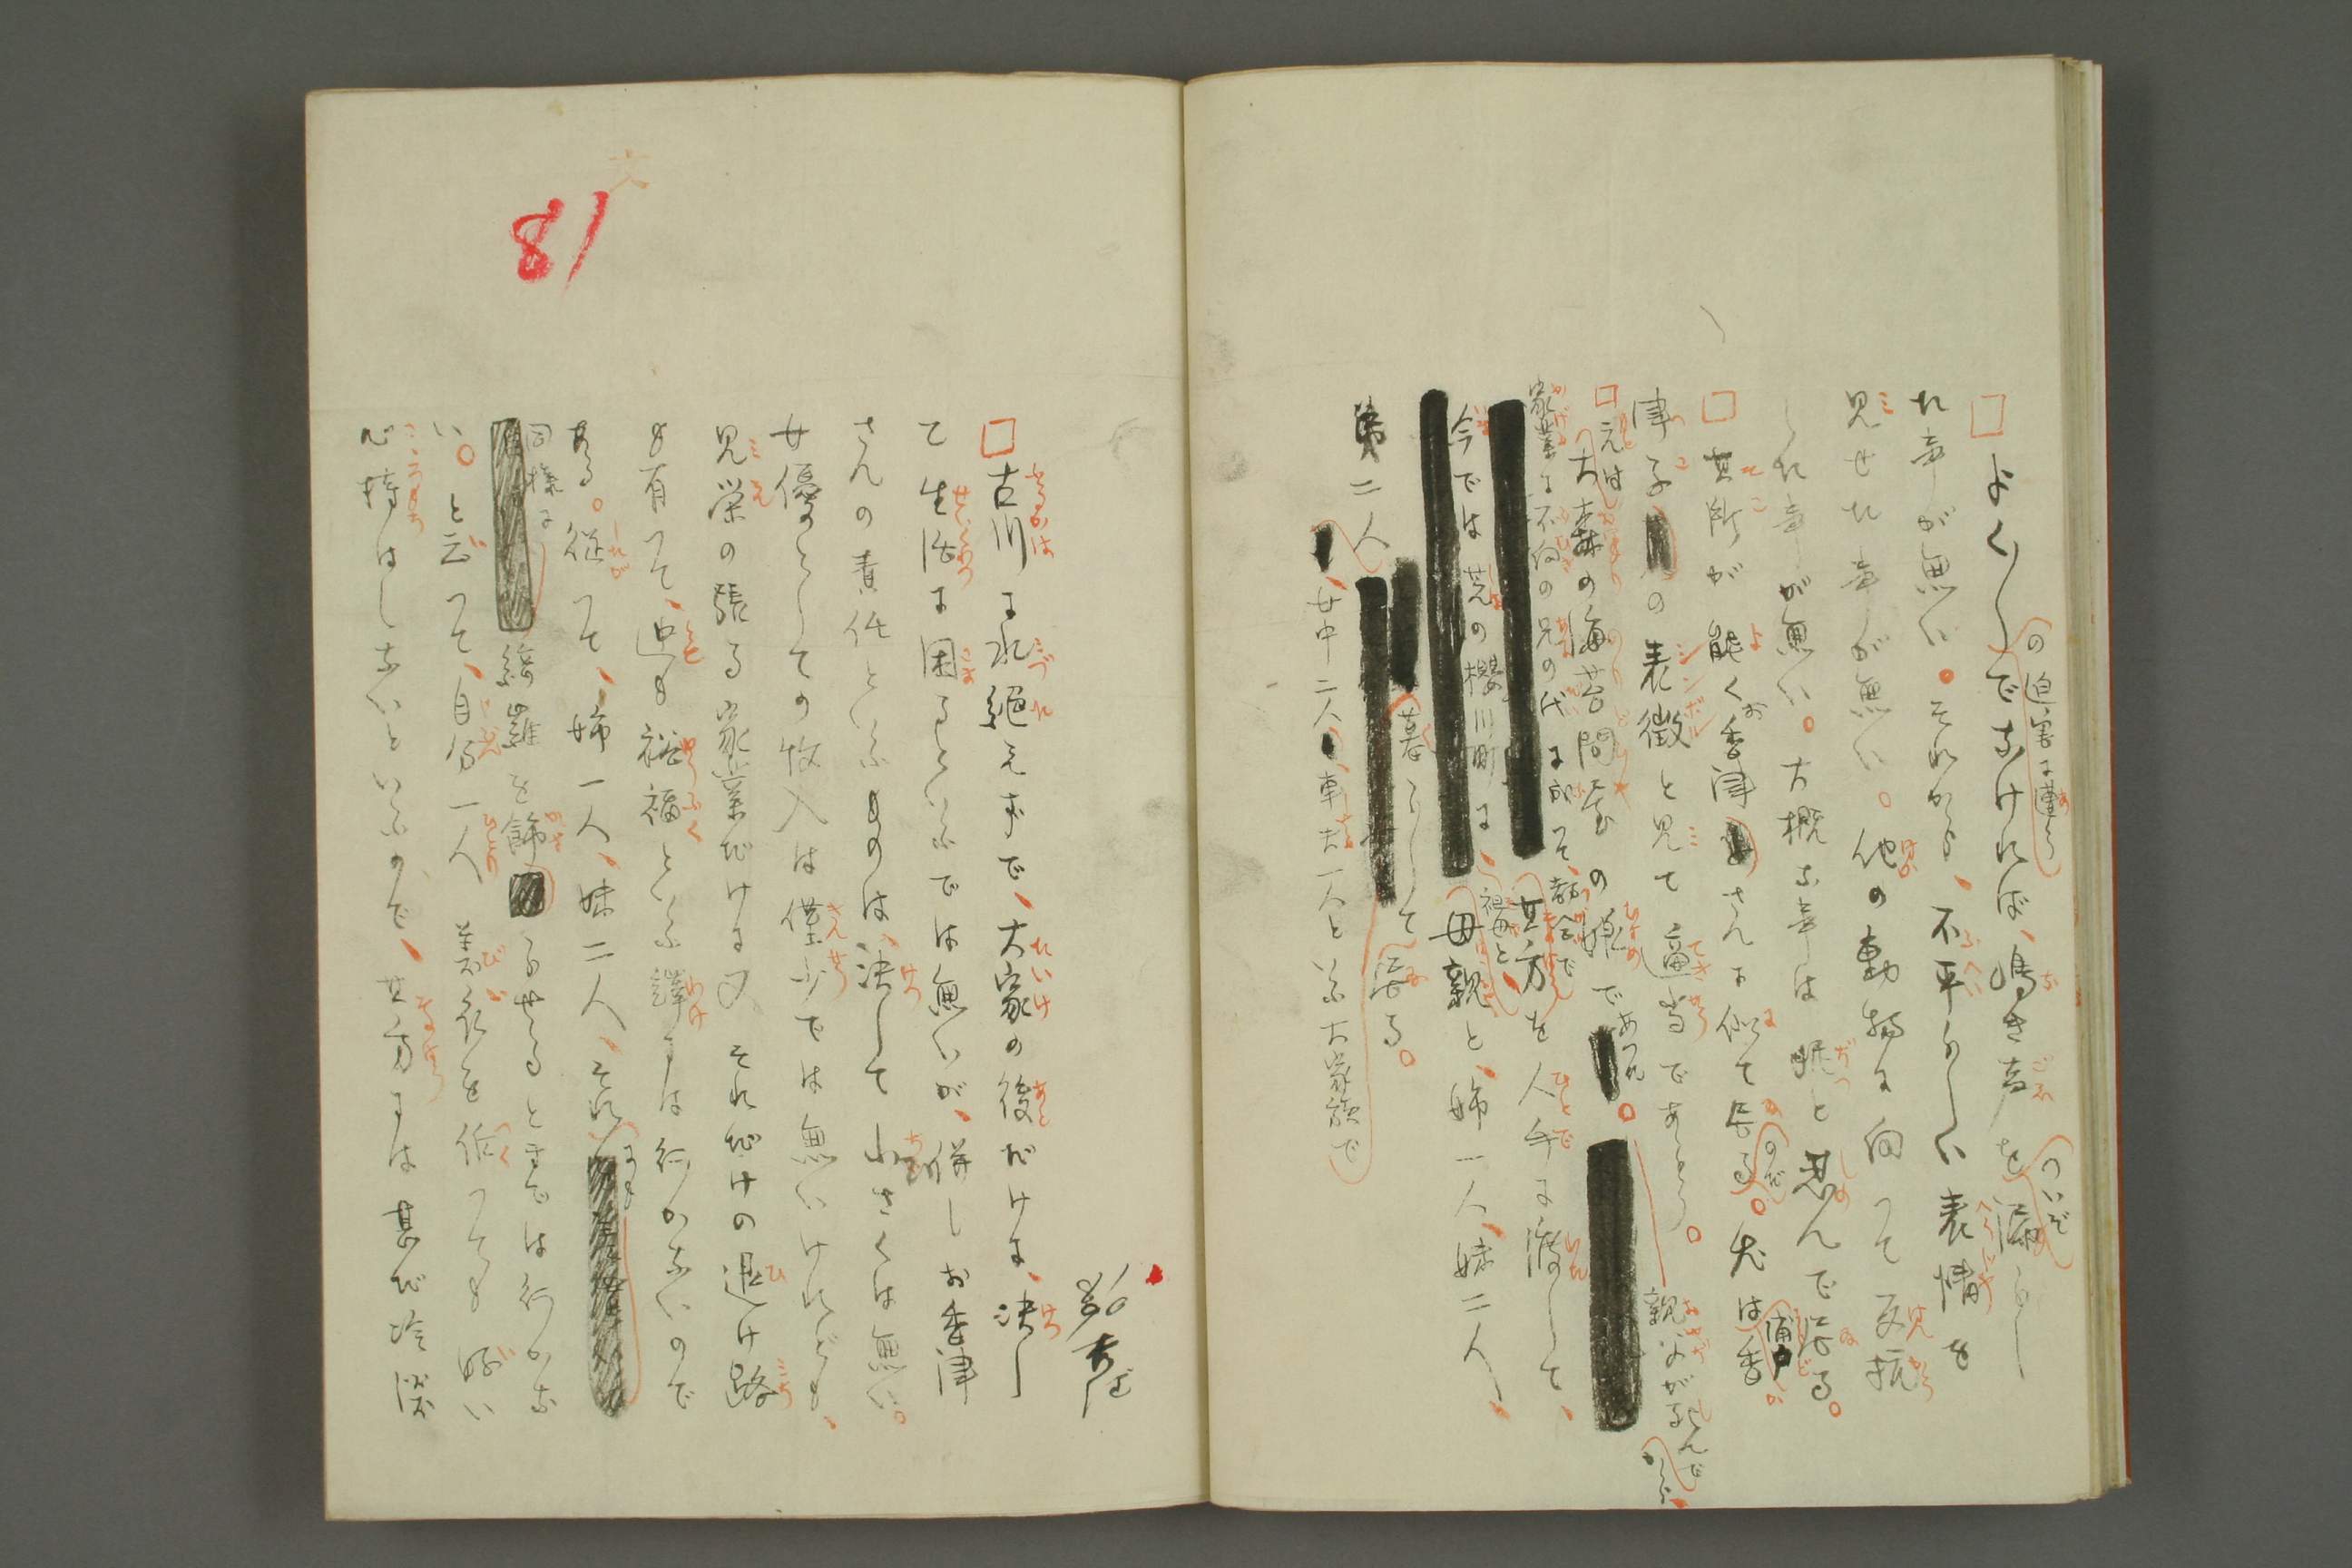 よく〳〵の迫害に遭はでなければ、鳴き声を漏らし
た事が無い。それから、不平らしい表情を
見せた事が無い。他の動物に向つて反抗
した事が無い。大概な事は眤と忍んで居る。
其所が能くお香津さんに似て居るのだ。犬は香
津子の表徴と見て適当であらう。
元は大森の海苔問屋の娘であつた。親父が死んで
家業に不向の兄の代に成つて、都合で其方を人手に渡して、
今では芝の桜川町に、祖母と母親と、姉一人、妹二人、
弟二人
暮らして居る。
女中二人、車夫一人といふ大家族で
古川に水絶えずで、大家の後だけに、決し
て生活に困るといふでは無いが、併しお香津
さんの責任といふものは、決して小さくは無い。
女優としての収入は僅少では無いけれども、
見栄の張る家業だけに又それだけの退け路
も有つて、迚も裕福といふ訳には行かないので
ある。従つて、姉一人、妹二人、それにも
同様に綺羅を飾らせるとまでは行かな
い。と云つて、自分一人美衣を作つても好い
心持はしないといふので、其方には甚だ冷淡
81